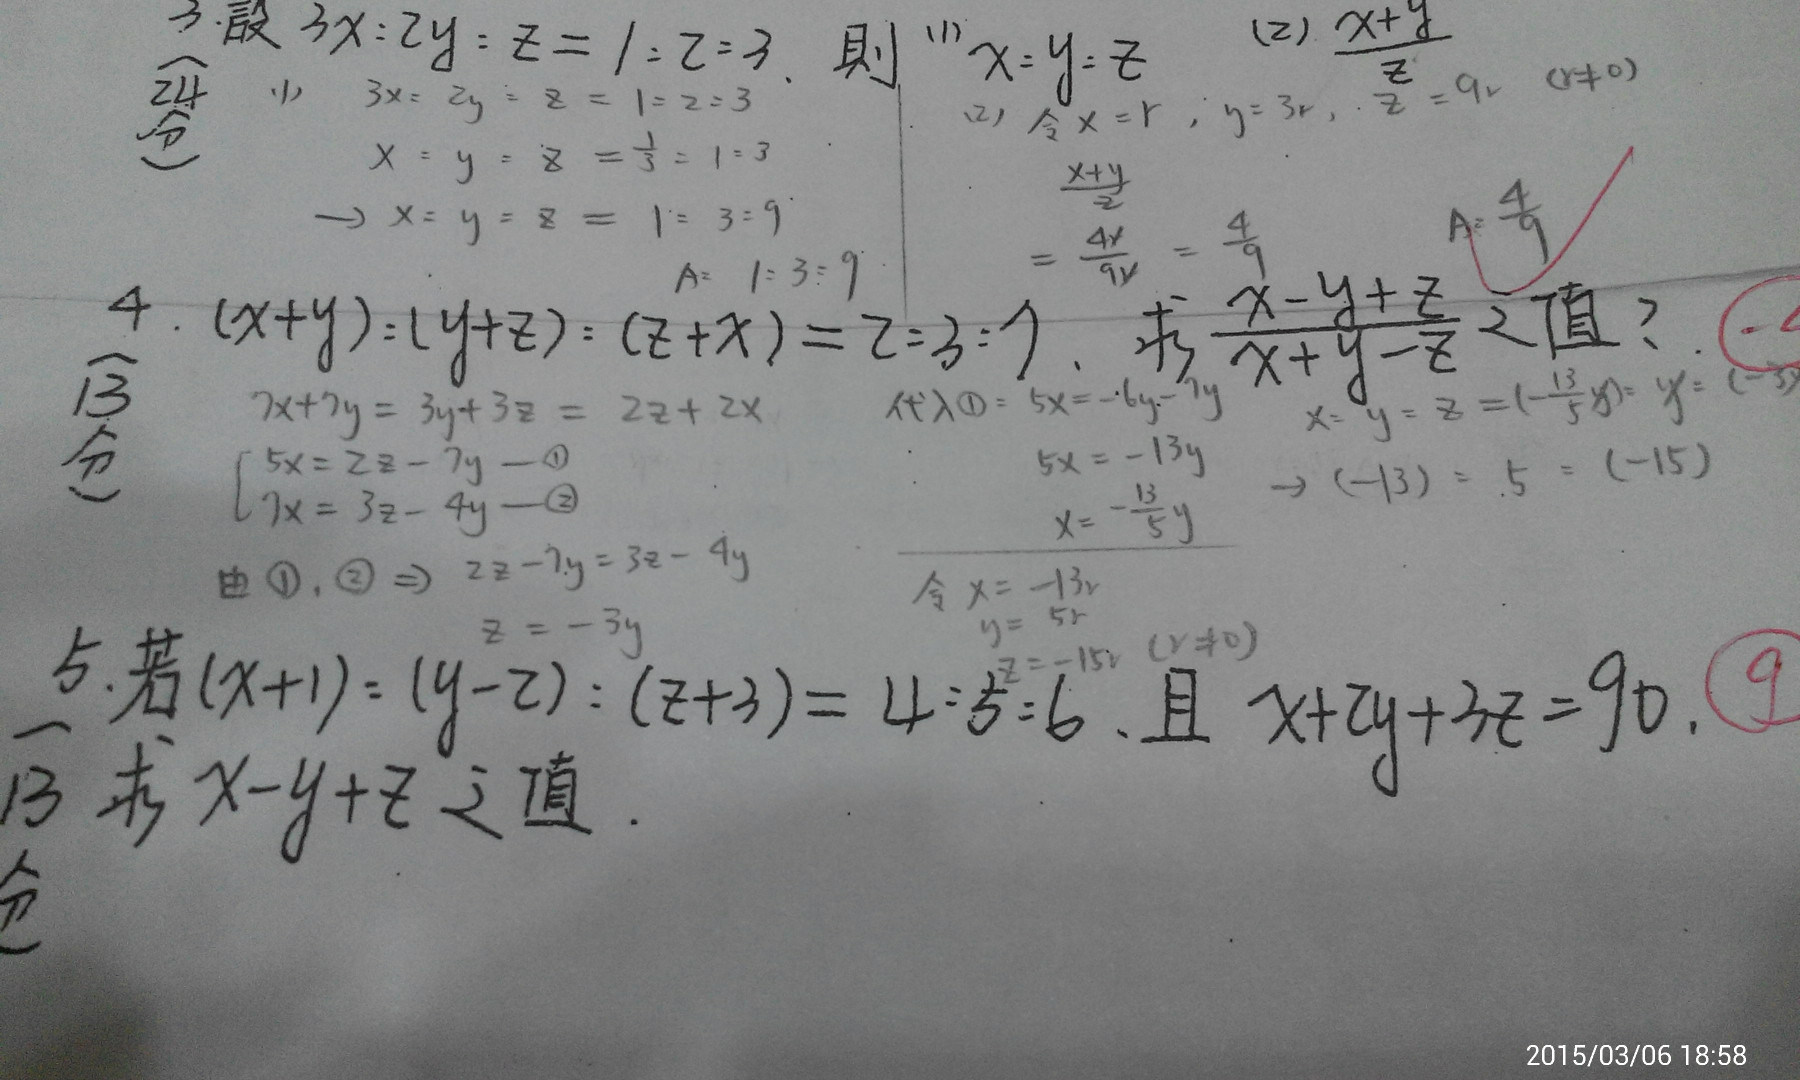 3.設 3x:2y:z=1:2:3. 則 (1) x:y:z (2) x+y/z
(24分)
(1) 3x:2y:z=1:2:3
x:y:z=1/3:1:3
→ x:y:z=1:3:9
A: 1:3:9
(2) 令x=r, y=3r, z=9r (r≠0)
x+y/z
=4r/9r=4/9
A:4/9
4. (x+y):(y+z):(z+x)=2:3:7. 求 x-y+z/x+y-z 之值?
(13分)
7x+7y=3y+3z=2z+2x
5x=2z-7y—①
7x=3z-4y—②
由①,②⇒ 2z-7y=3z-4y
z=-3y
代入①=5x=-6y-7y
5x=-13y
x=-13/5y
令x=-13r
y=5r
z=-15r (r≠0)
x:y:z=(-13/5y):y:(-3y
→(-13):5:(-15)
5.若(x+1):(y-2):(z+3)=4:5:6.且 x+2y+3z=90. 9
(13分)
求 x-y+z之值.
2015/03/06 18:58